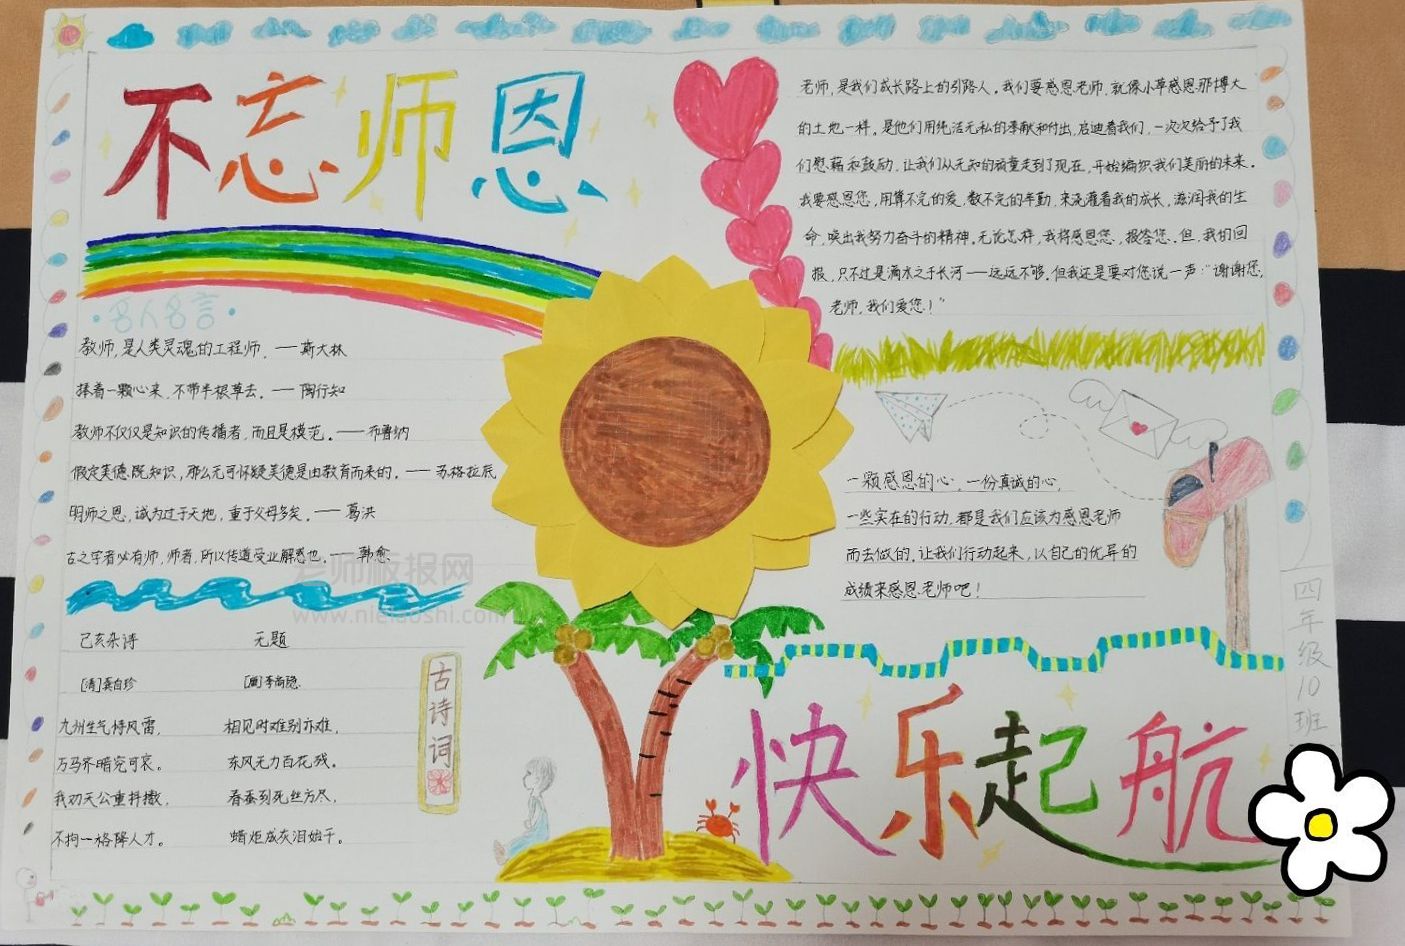 不忘师恩
·名人名言·
教师,是人类灵魂的工程师。——斯大林
捧着一颗心来,不带半根草去。——陶行知
教师不仅仅是知识的传播者,而且是模范。——布鲁纳
假定美德既知识,那么无可怀疑美德是由教育而来的。——苏格拉底
明师之恩,诚为过于天地,重于父母多矣。——葛洪
古之学者必有师,师者,所以传道受业解惑也。——韩愈
老师板报网
www.nielaoshi.com
己亥杂诗
[清]龚自珍
九州生气恃风雷,
万马齐喑究可哀。
我劝天公重抖擞,
不拘一格降人才。
无题
李商隐
相见时难别亦难,
东风无力百花残。
春蚕到死丝方尽,
蜡炬成灰泪始干。
古诗词
老师,是我们成长路上的引路人。我们要感恩老师,就像小草感恩那博大
的土地一样。是他们用纯洁无私的奉献和付出,启迪着我们,一次次给予了我
们慰藉和鼓励,让我们从无知的顽童走到了现在,开始编织我们美丽的未来。
我要感恩您,用算不完的爱,数不完的辛勤,来浇灌着我的成长,滋润我的生
命,唤出我努力奋斗的精神。无论怎样,我将感恩您,报答您。但,我们回
报,只不过是滴水之于长河——远远不够。但我还是要对您说一声:“谢谢您,
老师,我们爱您!”
一颗感恩的心,一份真诚的心,
一些实在的行动,都是我们应该为感恩老师
而去做的。让我们行动起来,以自己的优异的
成绩来感恩老师吧!
快乐起航
四年级10班